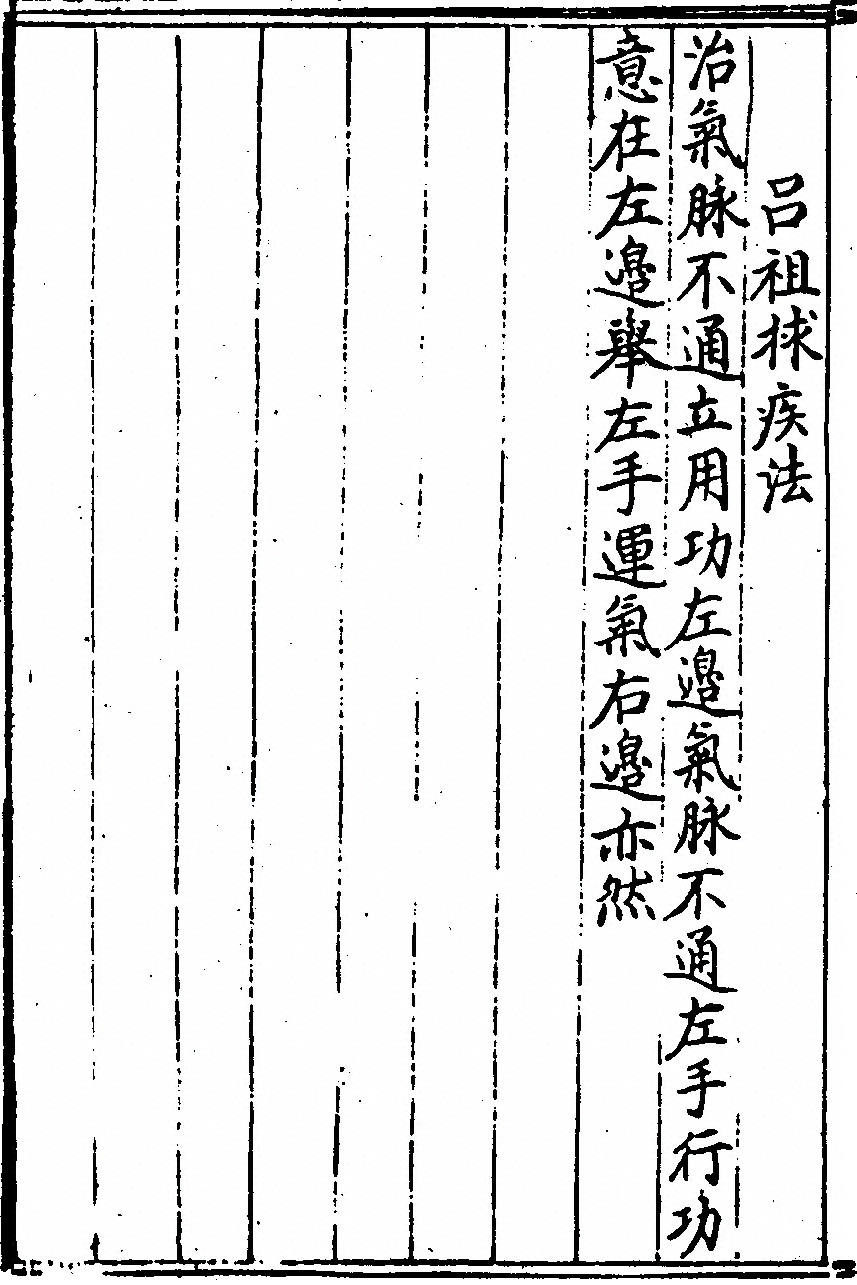 呂祖捄疾法
治氣脉不通立用功左邉氣脉不通左手行功
意在左邉舉左手運氣右邉亦然